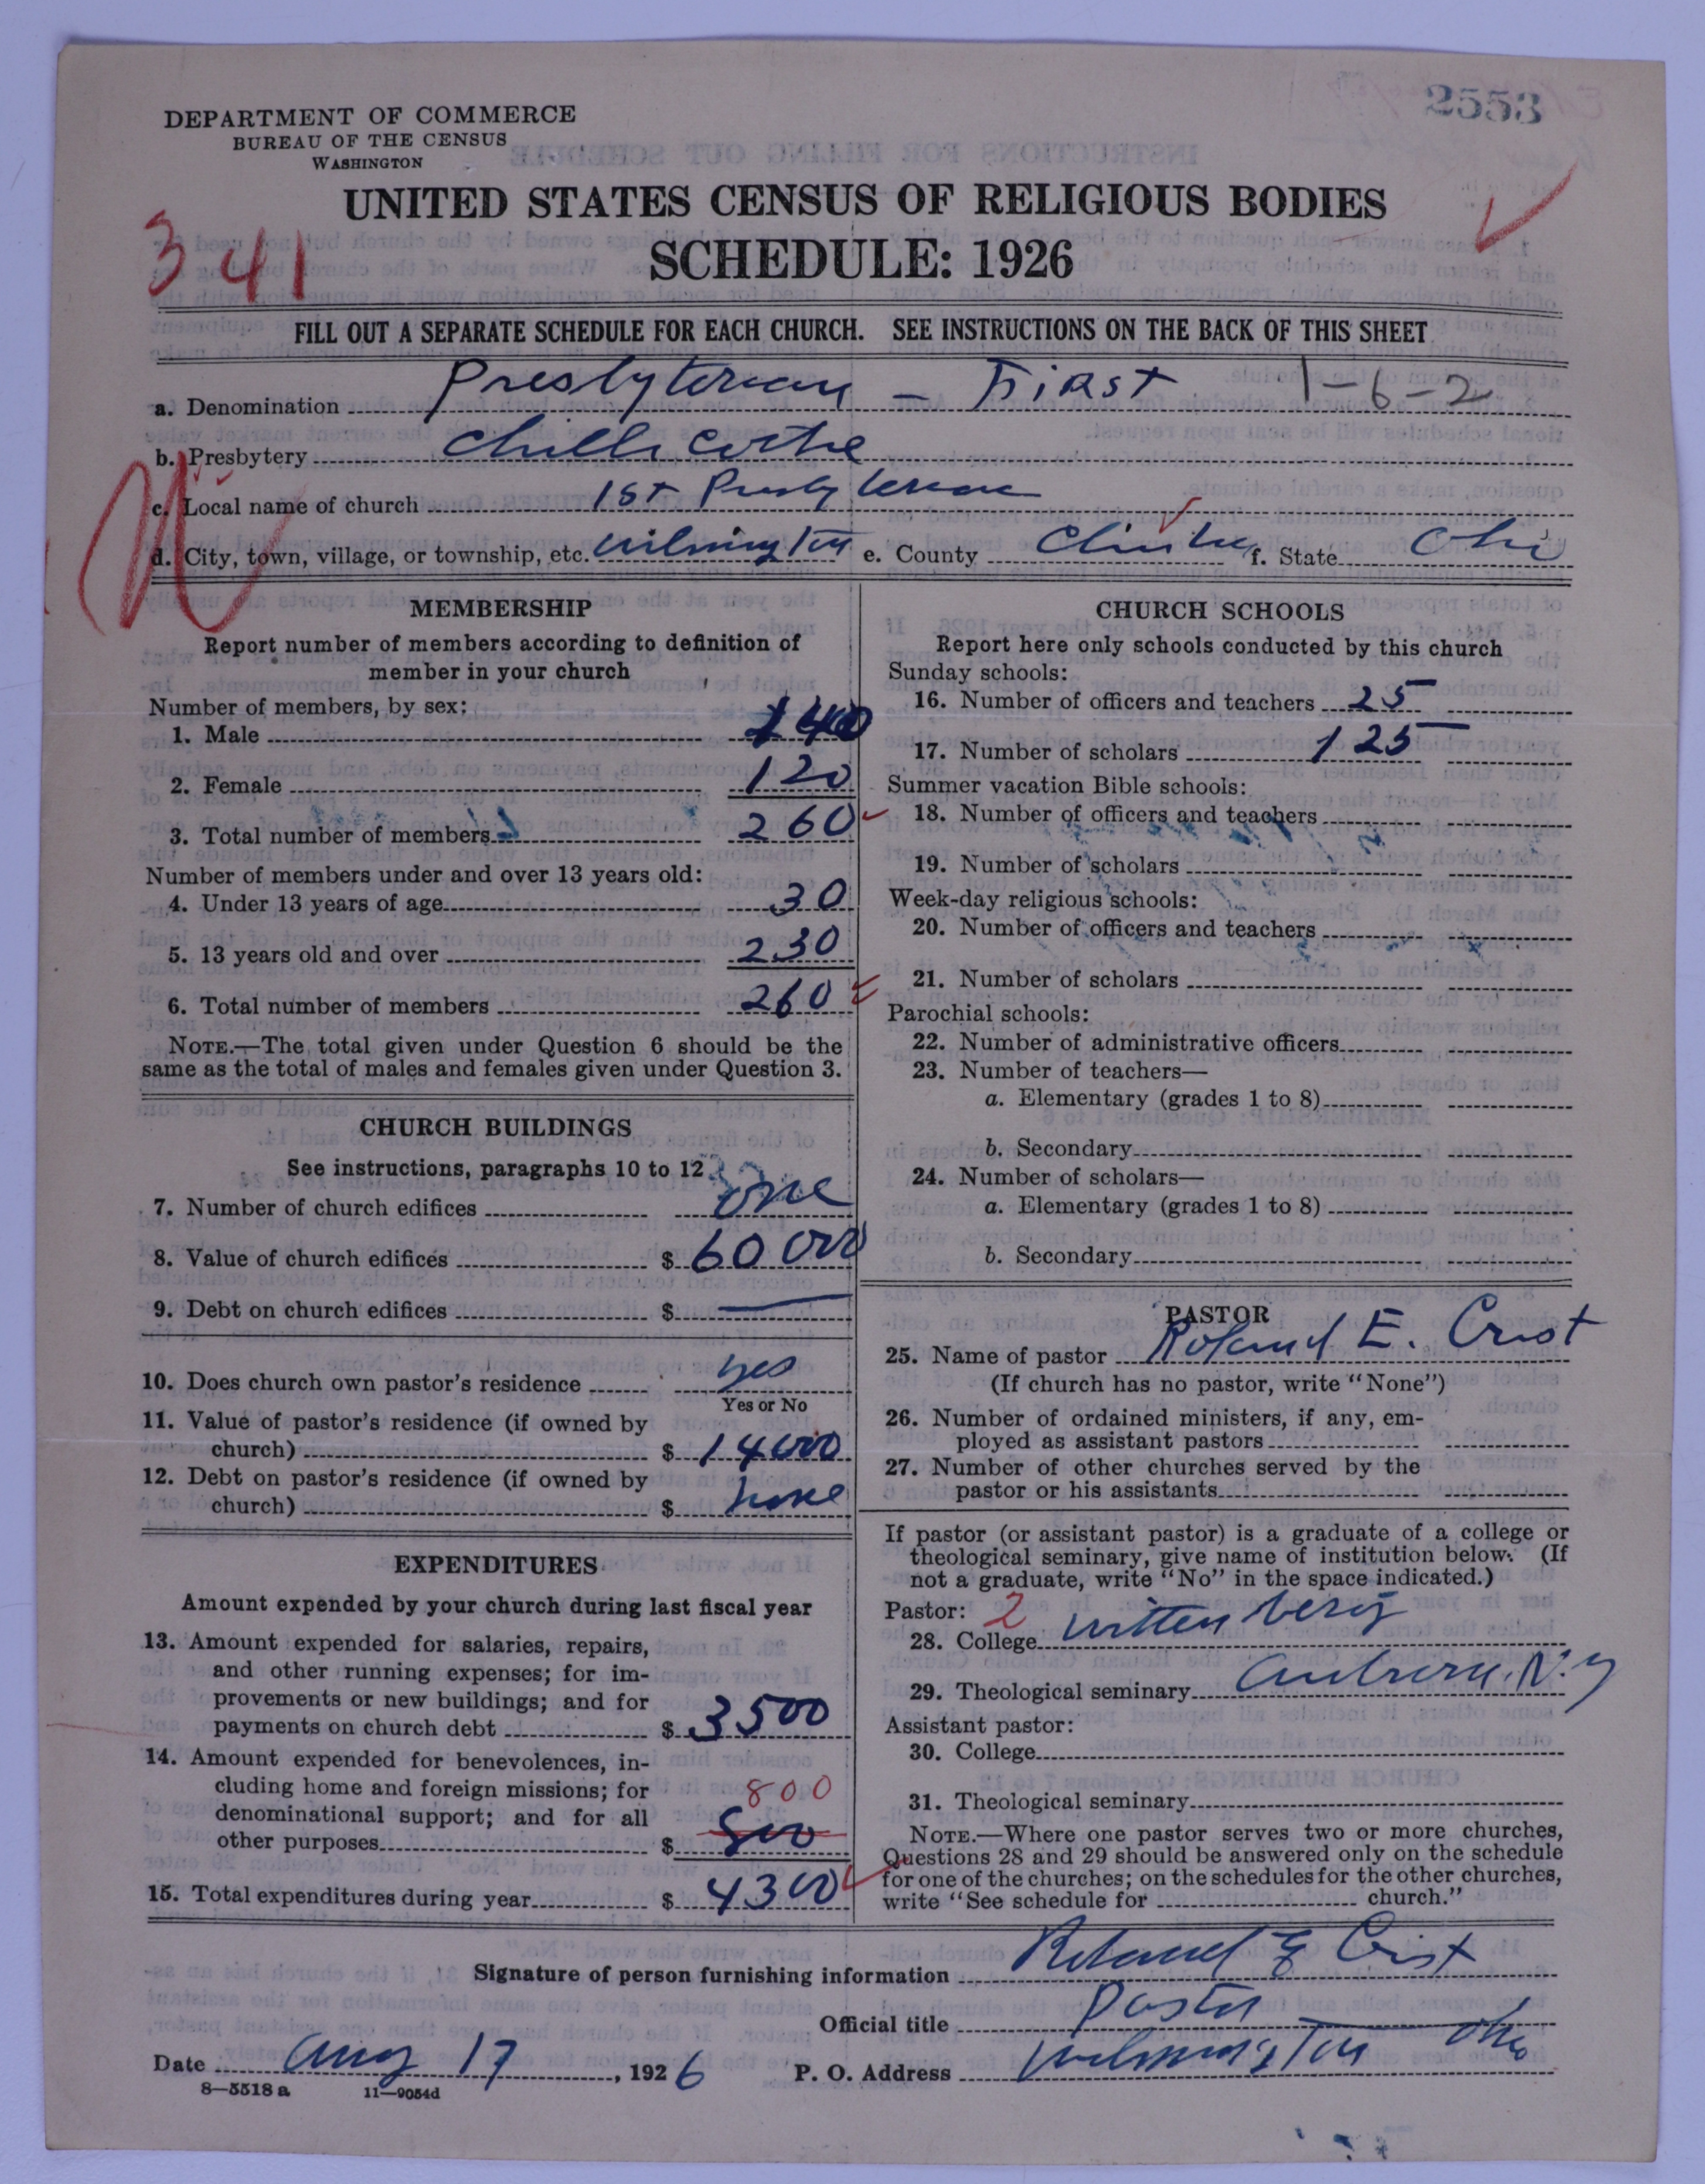 2553
DEPARTMENT OF COMMERCE
BUREAU OF THE CENSUS
WASHINGTON
UNITED STATES CENSUS OF RELIGIOUS BODIES
SCHEDULE: 1926
341
FILL OUT A SEPARATE SCHEDULE FOR EACH CHURCH. SEE INSTRUCTIONS ON THE BACK OF THIS SHEET
a. Denomination Presbyterian – First 1-6-2
b. Presbytery Chillicothe
c. Local name of church 1st Presbyterian
d. City, town, village, or township, etc. Wilmington e. County Clinton f. State Ohio
MEMBERSHIP
Report number of members according to definition of
member in your church
Number of members, by sex:
1. Male 140
2. Female 120
3. Total number of members 260
Number of members under and over 13 years old:
4. Under 13 years of age 30
5. 13 years old and over 230
6. Total number of members 260
NOTE.—The total given under Question 6 should be the
same as the total of males and females given under Question 3.
CHURCH BUILDINGS
See instructions, paragraphs 10 to 12
7. Number of church edifices one
8. Value of church edifices $ 60 000
9. Debt on church edifices $ —
10. Does church own pastor's residence yes
Yes or No
11. Value of pastor's residence (if owned by
church) $ 14000
12. Debt on pastor's residence (if owned by
church) $ none
EXPENDITURES
Amount expended by your church during last fiscal year
13. Amount expended for salaries, repairs,
and other running expenses; for im-
provements or new buildings; and for
payments on church debt $ 3500
14. Amount expended for benevolences, in-
cluding home and foreign missions; for
denominational support; and for all 800
other purposes $ 800
15. Total expenditures during year $ 4300
CHURCH SCHOOLS
Report here only schools conducted by this church
Sunday schools:
16. Number of officers and teachers 25
17. Number of scholars 125
Summer vacation Bible schools:
18. Number of officers and teachers
19. Number of scholars
Week-day religious schools:
20. Number of officers and teachers
21. Number of scholars
Parochial schools:
22. Number of administrative officers
23. Number of teachers—
a. Elementary (grades 1 to 8)
b. Secondary
24. Number of scholars—
a. Elementary (grades 1 to 8)
b. Secondary
PASTOR
25. Name of pastor Roland E. Crist
(If church has no pastor, write "None")
26. Number of ordained ministers, if any, em-
ployed as assistant pastors
27. Number of other churches served by the
pastor or his assistants
If pastor (or assistant pastor) is a graduate of a college or
theological seminary, give name of institution below. (If
not a graduate, write "No" in the space indicated.)
Pastor: 2
28. College Wittenberg
29. Theological seminary Auburn, N.Y
Assistant pastor:
30. College
31. Theological seminary
NOTE.—Where one pastor serves two or more churches,
Questions 28 and 29 should be answered only on the schedule
for one of the churches; on the schedules for the other churches,
write "See schedule for church."
Signature of person furnishing information Roland E Crist
Official title Pastor
Date Aug 17, 1926 P. O. Address Wilmington Ohio
8—5518 a 11—9054d